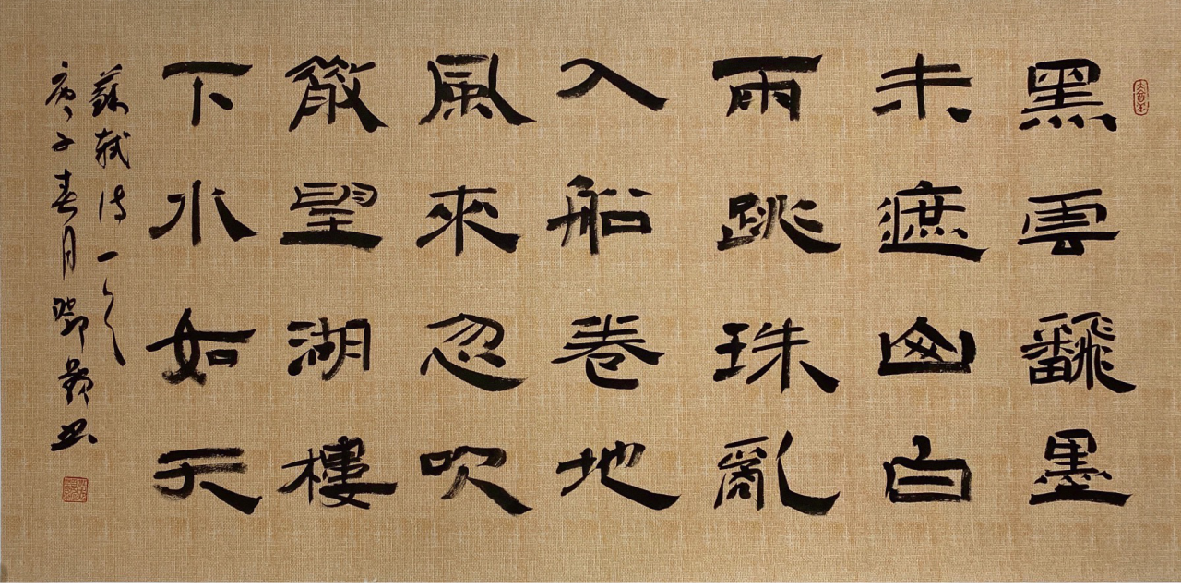 黑雲飜墨
未遮山白
雨跳珠亂
入船卷地
風來忽吹
散望湖樓
下水如天
蘇軾詩一首
庚子春月鄧書